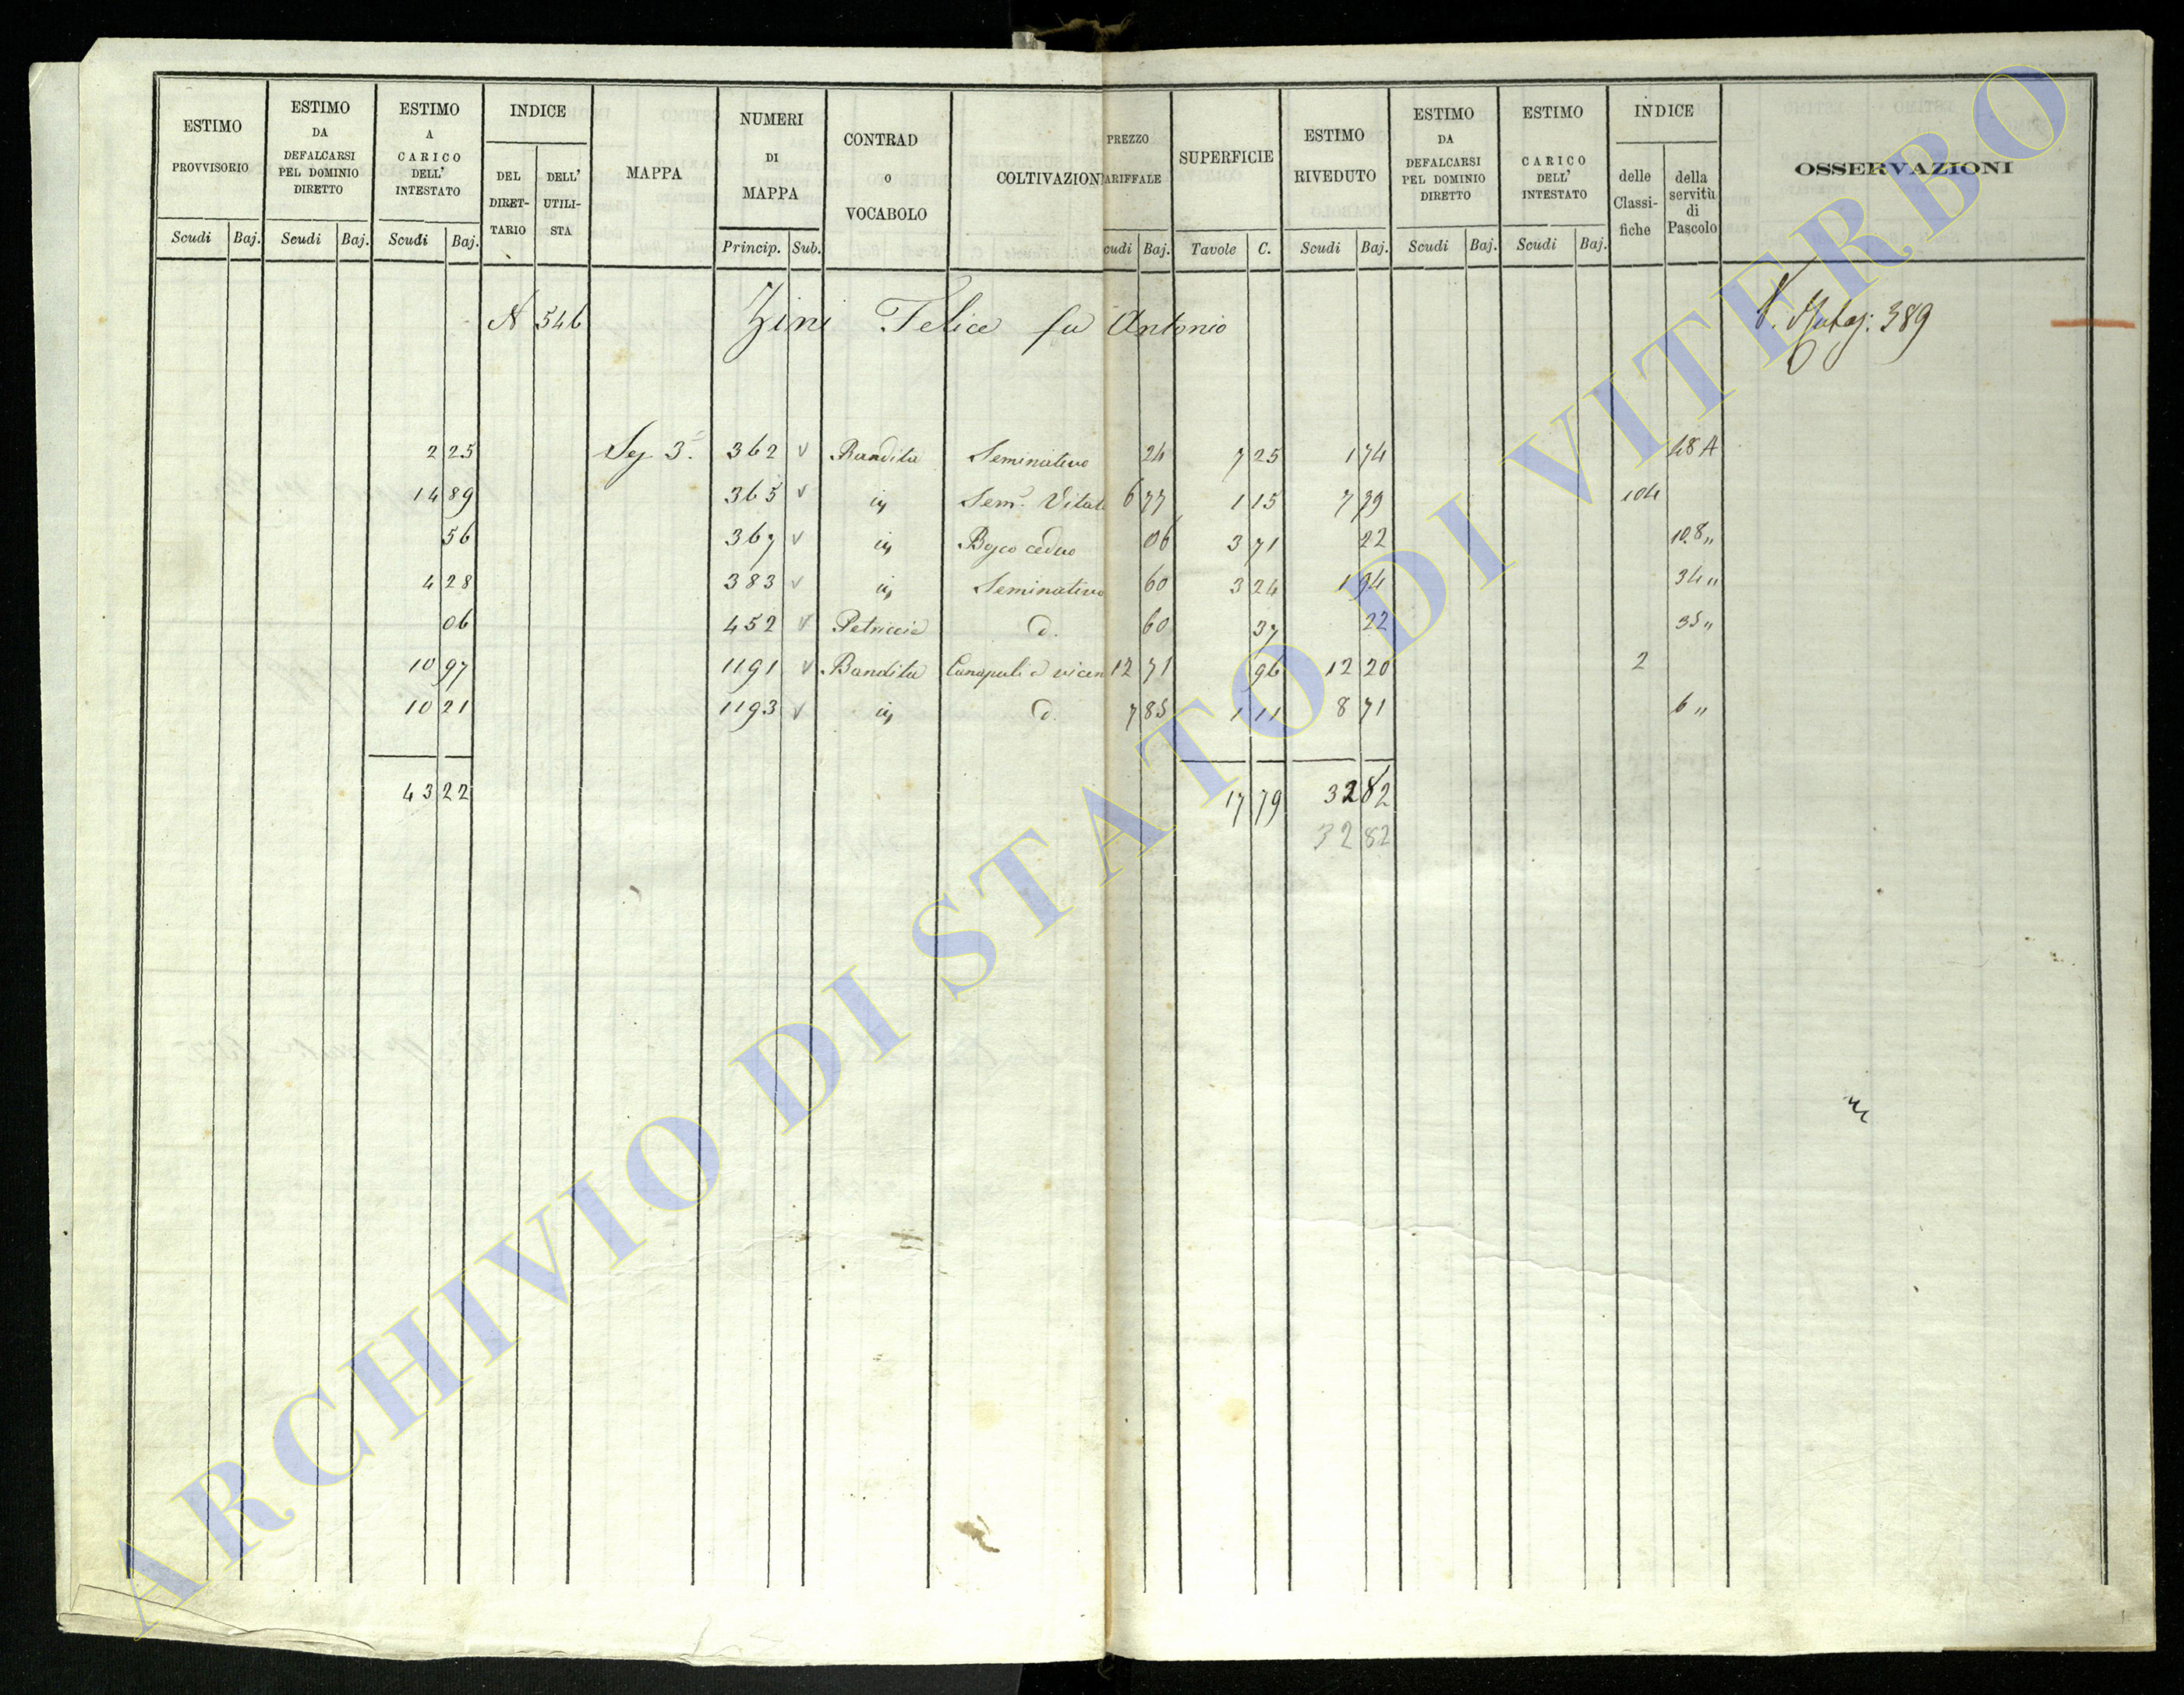 ESTIMO PROVVISORIO
ESTIMO DA DEFALCARSI PEL DOMINIO DIRETTO
ESTIMO A CARICO DELL' INTESTATO
INDICE
DEL DIRET-TARIO
DELL' UTILI-STA
MAPPA
NUMERI DI MAPPA
CONTRAD O VOCABOLO
COLTIVAZION
PREZZO ARIFFALE
SUPERFICIE
ESTIMO RIVEDUTO
ESTIMO DA DEFALCARSI PEL DOMINIO DIRETTO
ESTIMO CARICO DELL' INTESTATO
INDICE
delle Classi-fiche
della servitù di Pascolo
OSSERVAZIONI
Scudi Baj. Scudi Baj. Scudi Baj. Princip. Sub. cudi Baj. Tavole C. Scudi Baj. Scudi Baj. Scudi Baj.
N 546 Zini Felice fu Antonio 389
2 25 Sez 3.ª 362 v Bandita Seminativo 24 7 25 1 74 48 A
14 89 365 v id Sem.º Vitat 6 77 1 15 7 79 104
56 367 v id Bosco ceduo 06 3 71 22 108 "
4 28 383 v id Seminativo 60 3 24 1 94 34 "
06 452 v Petriccia d. 60 37 22 35 "
10 97 1191 v Bandita Canapule vicin 12 71 96 12 20 2
10 21 1193 v id d. 7 85 1 11 8 71 6 "
43 22 17 79 32 82
32 82
ARCHIVIO DI STATO DI VITERBO